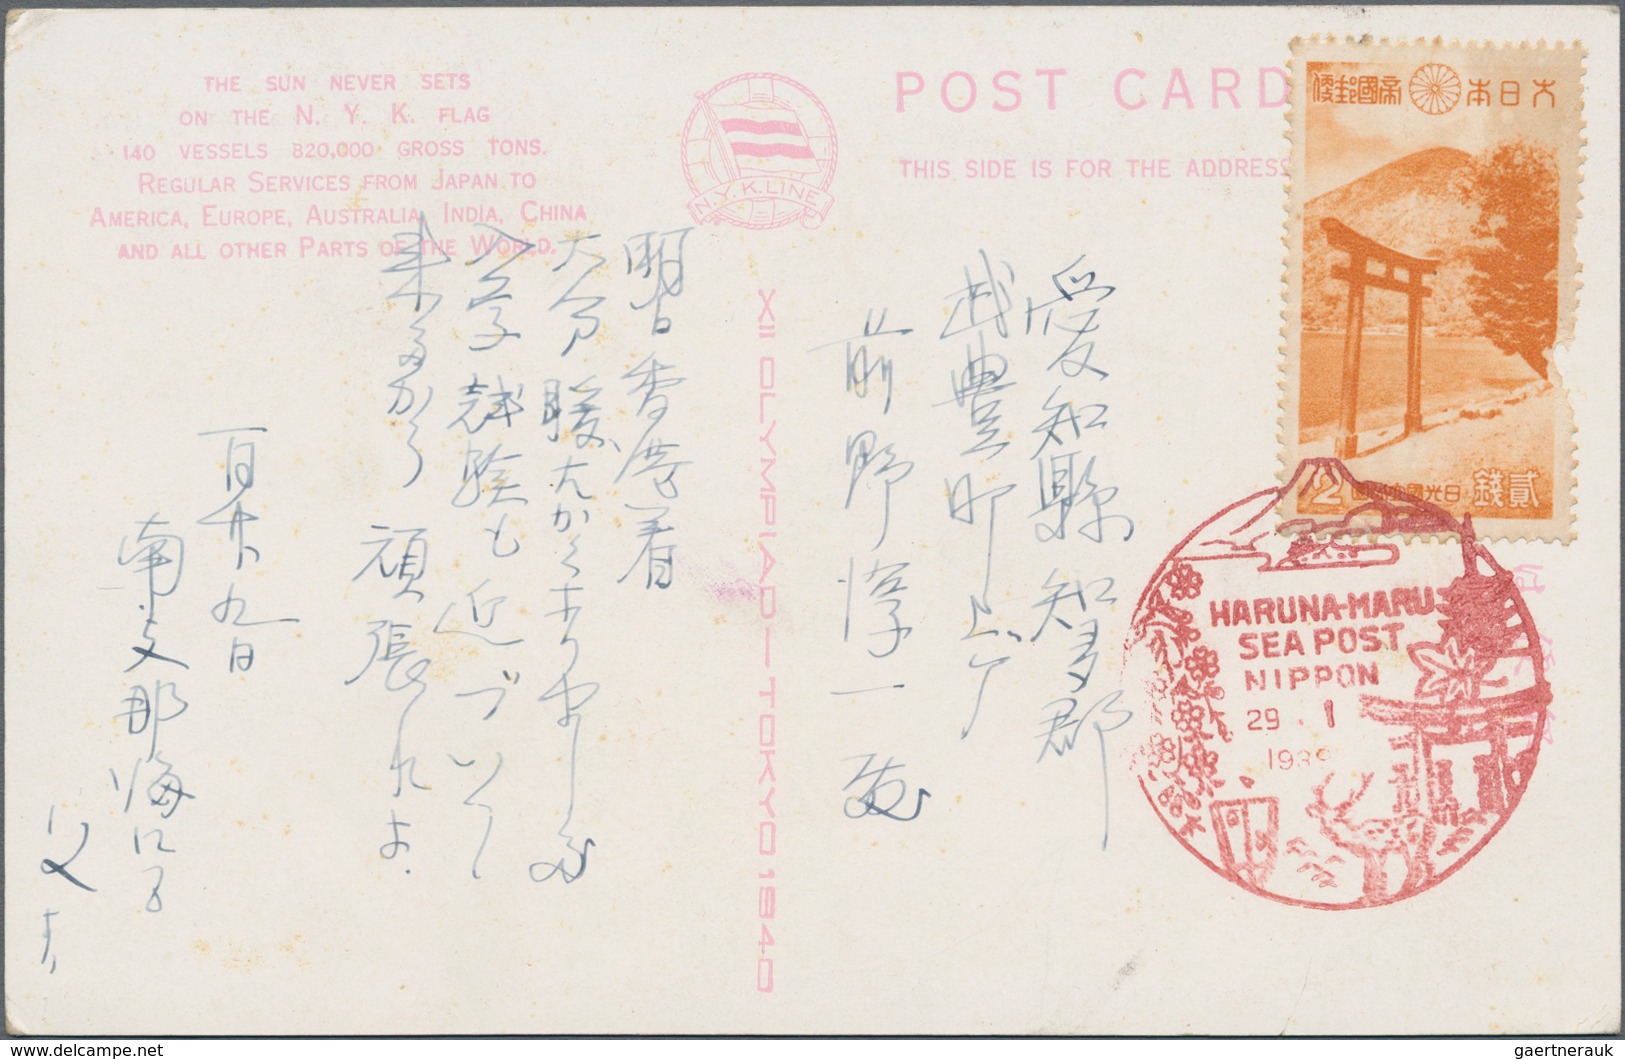 THE SUN NEVER SETS
ON THE N. Y. K. FLAG
140 VESSELS 820,000 GROSS TONS.
REGULAR SERVICES FROM JAPAN TO
AMERICA, EUROPE, AUSTRALIA, INDIA, CHINA
AND ALL OTHER PARTS OF THE WORLD.
N.Y.K.LINE
POST CARD
THIS SIDE IS FOR THE ADDRESS
XII OLYMPIAD—TOKYO 1940
帝國郵便 大日本
2 日光國立公園 貳錢
HARUNA-MARU
SEA POST
NIPPON
29 . 1
1939
愛知縣知多郡
武豊町上ゲ
前野惇一殿
明日香港着
大分暖
入学試験も近づいて
来るから 頑張れよ.
一月廿九日
南支那海ニテ
父より
gaertnerauk